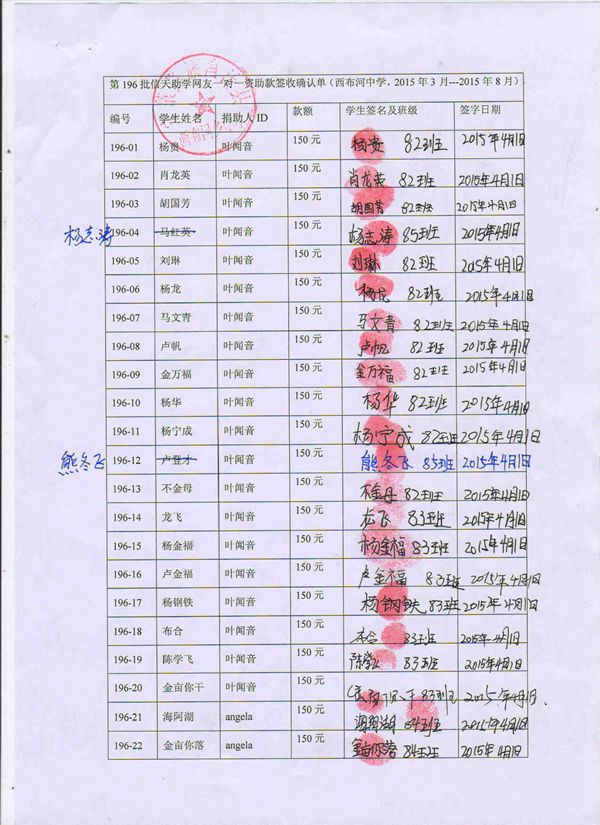 第 196 批信天助学网友一对一资助款签收确认单（西布河中学，2015 年 3 月---2015 年 8 月）
编号 学生姓名 捐助人 ID 款额 学生签名及班级 签字日期
196-01 杨贵 叶闻音 150 元 杨贵 82班 2015年4月1日
196-02 肖龙英 叶闻音 150 元 肖龙英 82班 2015年4月1日
196-03 胡国芳 叶闻音 150 元 胡国芳 82班 2015年4月1日
杨志涛 196-04 马红英 叶闻音 150 元 杨志涛 85班 2015年4月1日
196-05 刘琳 叶闻音 150 元 刘琳 82班 2015年4月1日
196-06 杨龙 叶闻音 150 元 杨龙 82班 2015年4月1日
196-07 马文青 叶闻音 150 元 马文青 82班 2015年4月1日
196-08 卢帆 叶闻音 150 元 卢帆 82班 2015年4月1日
196-09 金万福 叶闻音 150 元 金万福 82班 2015年4月1日
196-10 杨华 叶闻音 150 元 杨华 82班 2015年4月
196-11 杨宁成 叶闻音 150 元 杨宁成 82班 2015年4月1日
熊冬飞 196-12 卢登才 叶闻音 150 元 熊冬飞 85班 2015年4月1日
196-13 不金母 叶闻音 150 元 不金母 82班 2015年4月1日
196-14 龙飞 叶闻音 150 元 龙飞 83班 2015年4月1日
196-15 杨金福 叶闻音 150 元 杨金福 83班 2015年4月1日
196-16 卢金福 叶闻音 150 元 卢金福 83班 2015年4月1日
196-17 杨钢铁 叶闻音 150 元 杨钢铁 83班 2015年4月1日
196-18 布合 叶闻音 150 元 布合 83班 2015年4月1日
196-19 陈学飞 叶闻音 150 元 陈学飞 83班 2015年4月1日
196-20 金亩你干 叶闻音 150 元 金亩你干 83班 2015年4月1日
196-21 海阿湖 angela 150 元 海阿湖 84班 2015年4月1日
196-22 金亩你落 angela 150 元 金亩你落 84班 2015年4月1日